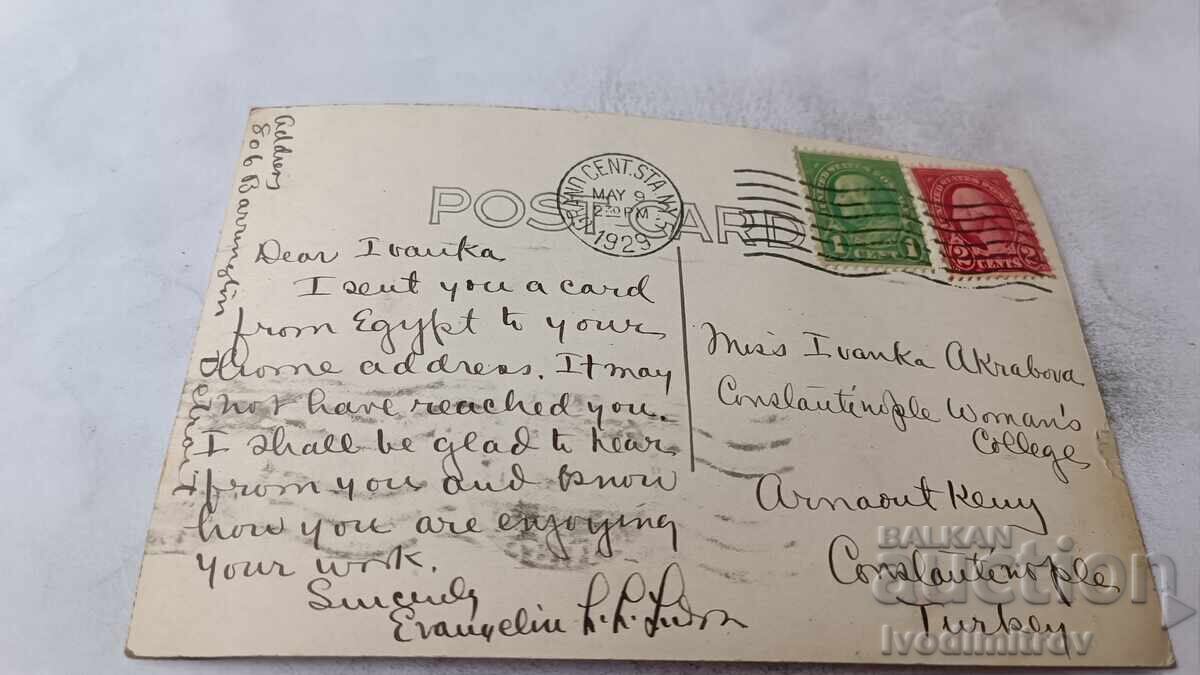 Address
806 Barrington
Detroit
POST CARD
GRAND CENT. STA. N.Y.
MAY 9
2 30 PM
1929
UNITED STATES POSTAGE
1 CENT 1
UNITED STATES POSTAGE
2 CENTS 2
Dear Ivanka
I sent you a card
from Egypt to your
home address. It may
not have reached you.
I shall be glad to hear
from you and know
how you are enjoying
your work.
Sincerely
Evangelin
Miss Ivanka Akrabova
Constantinople Woman's
College
Arnaout Keuy
Constantinople
Turkey
BALKAN
auction
Ivodimitrov